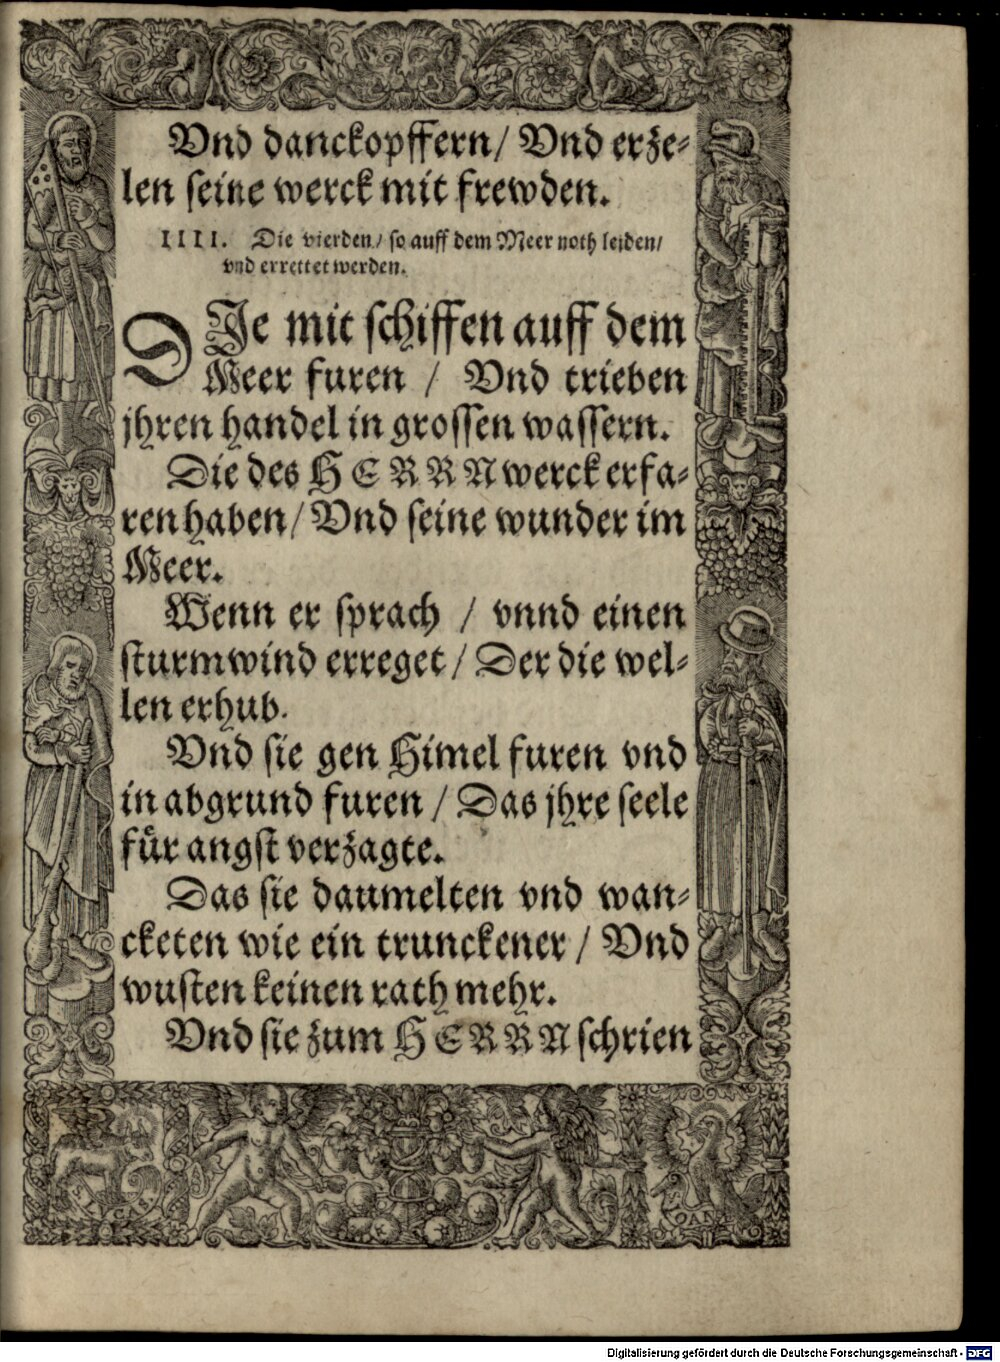 Vnd danckopffern/ Vnd erze-
len seine werck mit frewden.
IIII. Die vierden/ so auff dem Meer noth leiden/
vnd errettet werden.
DIe mit schiffen auff dem
Meer furen / Vnd trieben
jhren handel in grossen wassern.
Die des HERRN werck erfa-
ren haben/ Vnd seine wunder im
Meer.
Wenn er sprach / vnnd einen
sturmwind erreget / Der die wel-
len erhub.
Vnd sie gen Himel furen vnd
in abgrund furen / Das jhre seele
fuͤr angst verzagte.
Das sie daumelten vnd wan-
cketen wie ein trunckener / Vnd
wusten keinen rath mehr.
Vnd sie zum HERRN schrien
Digitalisierung gefördert durch die Deutsche Forschungsgemeinschaft - DFG